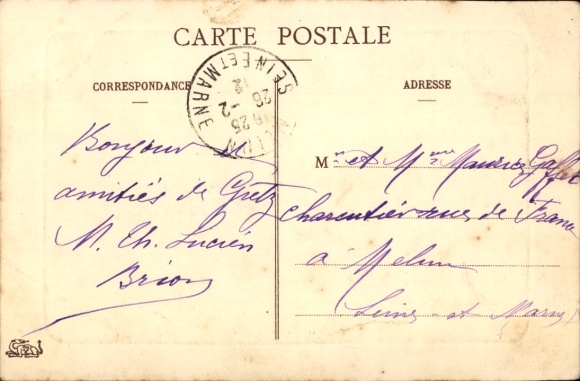 CARTE POSTALE
CORRESPONDANCE
ADRESSE
SEINE ET MARNE
Bonjour et
amitiés de Gretz
M. Ch. Lucien
Brion
M. et Mme Maurice
charcutier rue de France
à Melun
Seine et Marne